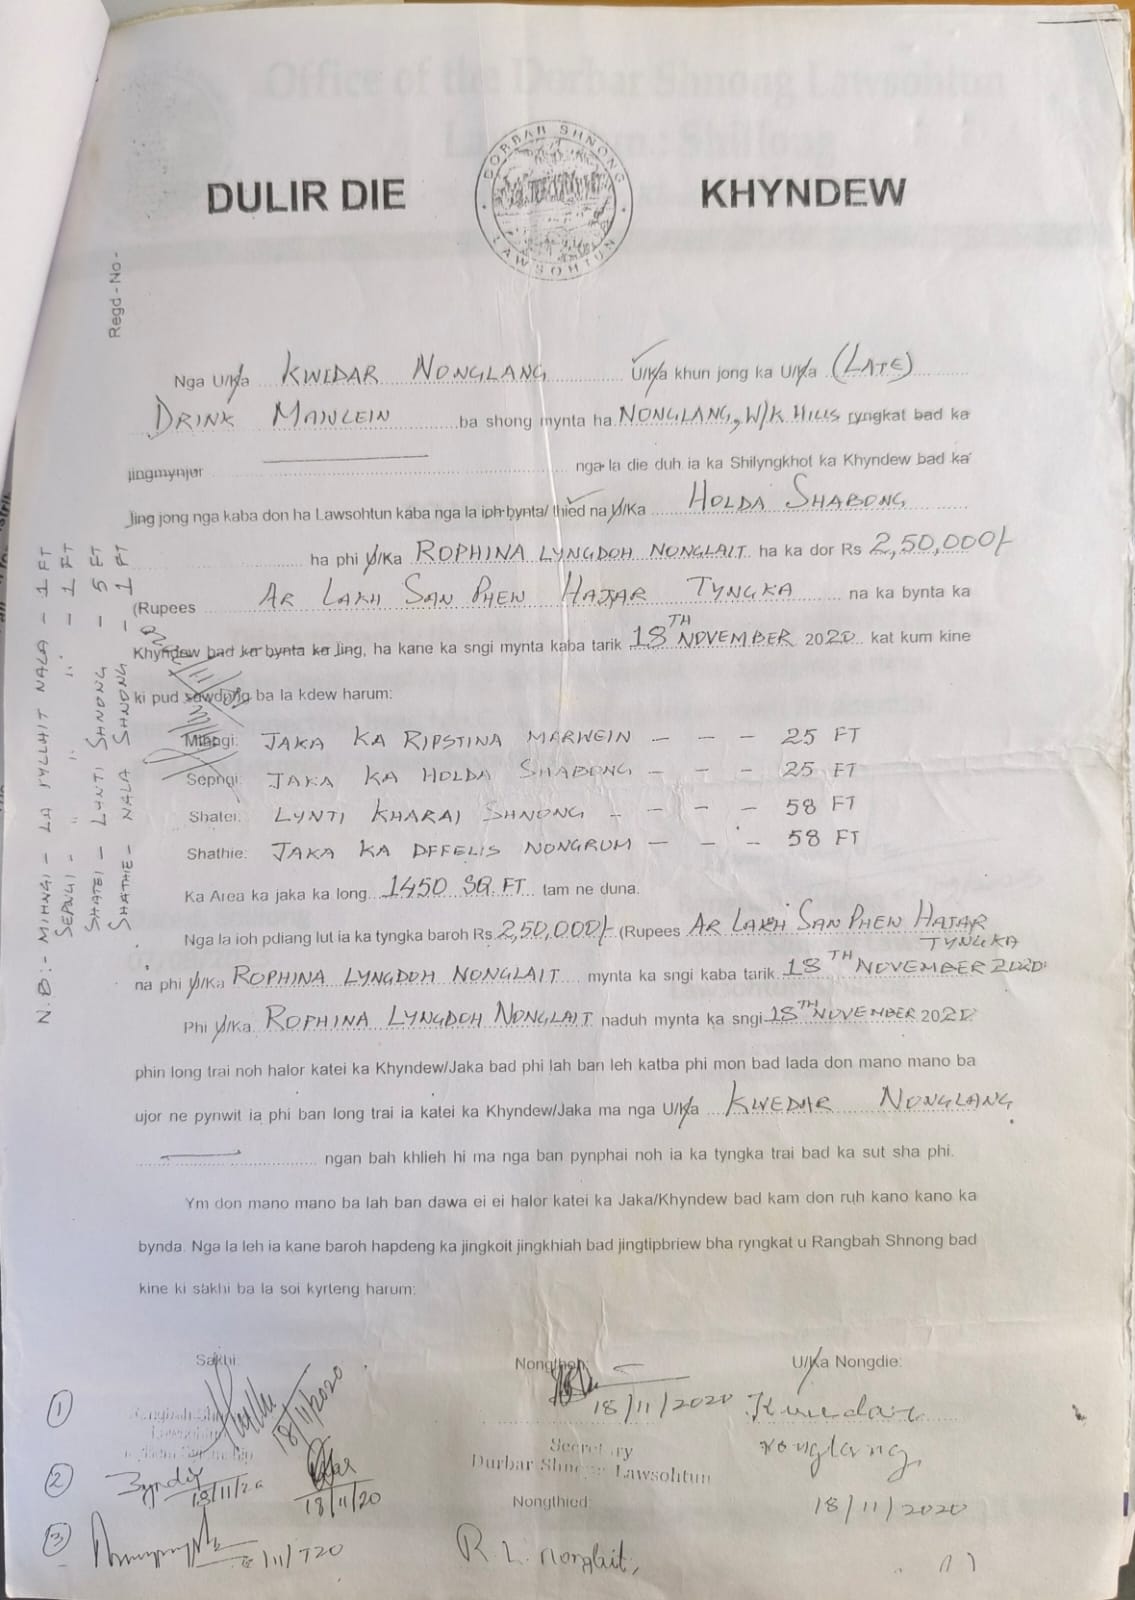 DULIR DIE KHYNDEW
DORBAR SHNONG
LAWSOHTUN
Regd - No -
Nga U/Ka KWIDAR NONGLANG U/Ka khun jong ka U/Ka (LATE)
DRINK MAWLEIN ba shong mynta ha NONGLANG, W/K HILLS ryngkat bad ka
jingmynjur nga la die duh ia ka Shilyngkhot ka Khyndew bad ka
Jing jong nga kaba don ha Lawsohtun kaba nga la ioh bynta/ thied na U/Ka HOLDA SHABONG
ha phi U/Ka ROPHINA LYNGDOH NONGLAIT ha ka dor Rs 2,50,000/-
(Rupees AR LAKH SAN PHEW HAJAR TYNGKA na ka bynta ka
Khyndew bad ka bynta ka Jing, ha kane ka sngi mynta kaba tarik 18TH NOVEMBER 2020 kat kum kine
ki pud sawdong ba la kdew harum:
Mihngi: JAKA KA RIPSTINA MARWEIN - - - 25 FT
Sepngi: JAKA KA HOLDA SHABONG - - - 25 FT
Shatei: LYNTI KHARAI SHNONG - - - - 58 FT
Shathie: JAKA KA DFFELIS NONGRUM - - - 58 FT
Ka Area ka jaka ka long 1450 SQ. FT tam ne duna.
Nga la ioh pdiang lut ia ka tyngka baroh Rs 2,50,000/- (Rupees AR LAKH SAN PHEW HAJAR TYNGKA
na phi U/Ka ROPHINA LYNGDOH NONGLAIT mynta ka sngi kaba tarik 18TH NOVEMBER 2020
Phi U/Ka ROPHINA LYNGDOH NONGLAIT naduh mynta ka sngi 18TH NOVEMBER 2020
phin long trai noh halor katei ka Khyndew/Jaka bad phi lah ban leh katba phi mon bad lada don mano mano ba
ujor ne pynwit ia phi ban long trai ia katei ka Khyndew/Jaka ma nga U/Ka KWEDAR NONGLANG
ngan bah khlieh hi ma nga ban pynphai noh ia ka tyngka trai bad ka sut sha phi.
Ym don mano mano ba lah ban dawa ei ei halor katei ka Jaka/Khyndew bad kam don ruh kano kano ka
bynda. Nga la leh ia kane baroh hapdeng ka jingkoit jingkhiah bad jingtipbriew bha ryngkat u Rangbah Shnong bad
kine ki sakhi ba la soi kyrteng harum:
N.B:- MIHNGI - LA PYLLHIT NALA - 1 FT
SEPNGI - " " " - 1 FT
SHATEI - LYNTI SHNONG - 5 FT
SHATHIE - NALA SHNONG - 1 FT
Sakhi: U/Ka Nongdie:
1 18/11/2020 18/11/2020 Kwedar
Nonglang,
Secretary
Durbar Shnong Lawsohtun
2 18/11/20 18/11/20 Nongthied: 18/11/2020
3 R. L. Nonglait,